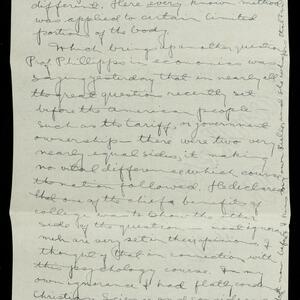 different. Here every known method
was applied to certain limited
portions of the body.
Which brings up another question
Prof Phillips in economics was
saying yesterday that in nearly all
the great question recently set
before the American people
such as the tariff, or government
ownership - there were two very
nearly equal sides, it making
no vital difference which course
the nation followed. He declared
that one of the chief benefits of
college was to show the other
side of the question - most ignorant
men are very set in their opinion. I
thought of that in connection with
this psychology course. In my
own ignorance I had flatly
Christian Science and